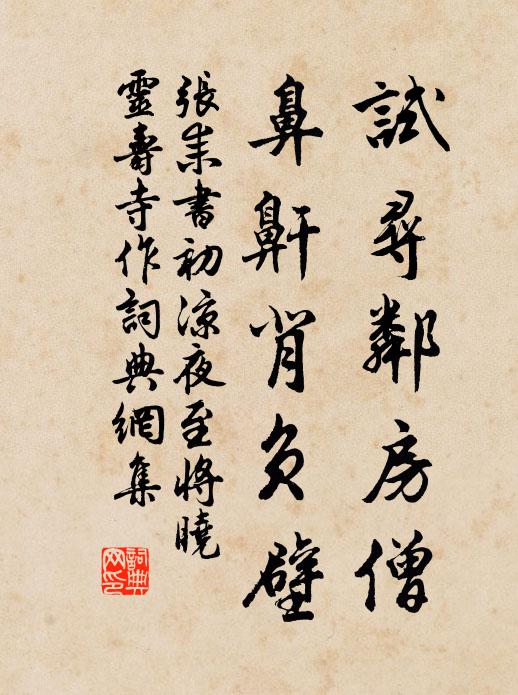 試尋鄰房僧
鼻鼾背負壁
張耒書初涼夜至將曉
靈壽寺作詞典網集
詞典
网印